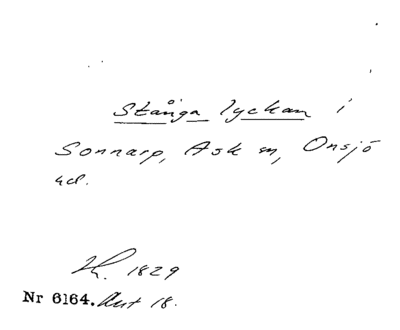 Stånga lyckan i
Sonnarp, Ask sn, Onsjö
hd.
1829
Nr 6164. Aut 18.